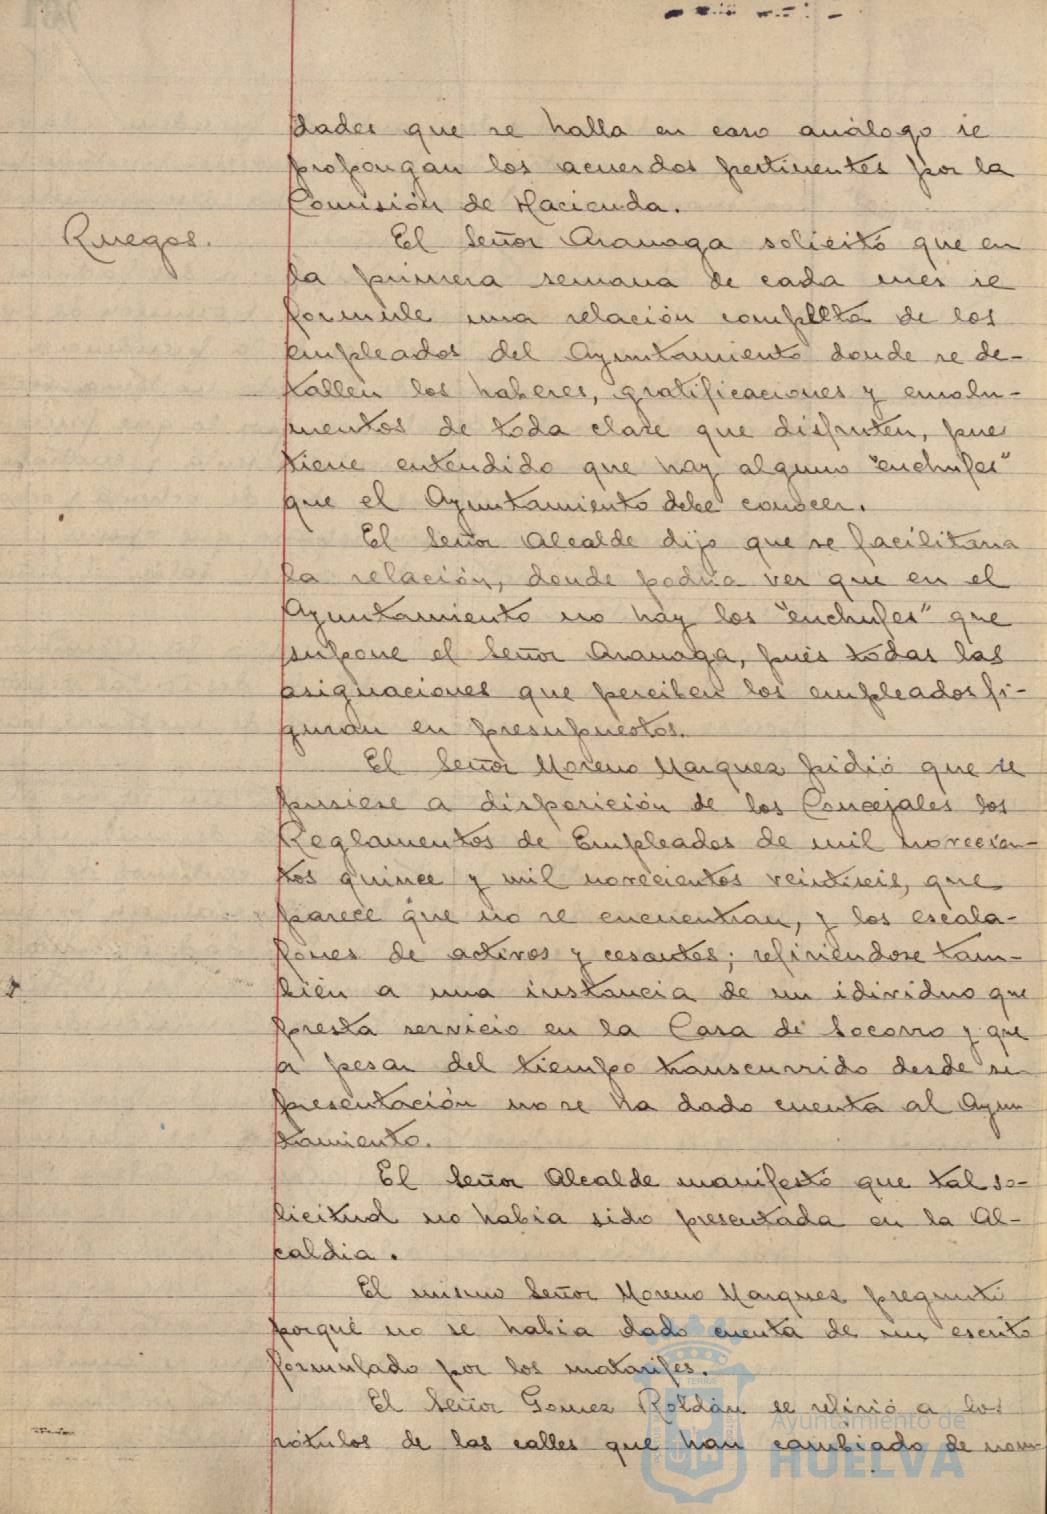 dades que se halla en caso análogo se
propongan los acuerdos pertinentes por la
Comisión de Hacienda.
Ruegos.
El Señor Aranaga solicitó que en
la primera semana de cada mes se
formule una relación completa de los
empleados del Ayuntamiento donde se de-
tallen los haberes, gratificaciones y emolu-
mentos de toda clase que disfruten, pues
tiene entendido que hay alguno "enchufes"
que el Ayuntamiento debe conocer.
El Señor Alcalde dijo que se facilitaria
la relación, donde podria ver que en el
Ayuntamiento no hay los "enchufes" que
supone el Señor Aranaga, pués todas las
asignaciones que perciben los empleados fi-
guran en presupuestos.
El Señor Moreno Marquez pidió que se
pusiese a disposición de los Concejales los
Reglamentos de Empleados de mil novecien-
tos quince y mil novecientos veintiseis, que
parece que no se encuentran, y los escala-
fones de activos y cesantes; refiriendose tam-
bién a una instancia de un idividuo que
presta servicio en la Casa de Socorro y que
a pesar del tiempo transcurrido desde su
presentación no se ha dado cuenta al Ayun
tamiento.
El Señor Alcalde manifestó que tal so-
licitud no habia sido presentada en la Al-
caldia.
El mismo Señor Moreno Marquez preguntó
porqué no se habia dado cuenta de un escrito
formulado por los matarifes.
El Señor Gomez Roldán se refirió a los
rótulos de las calles que han cambiado de nom-
Ayuntamiento de
HUELVA